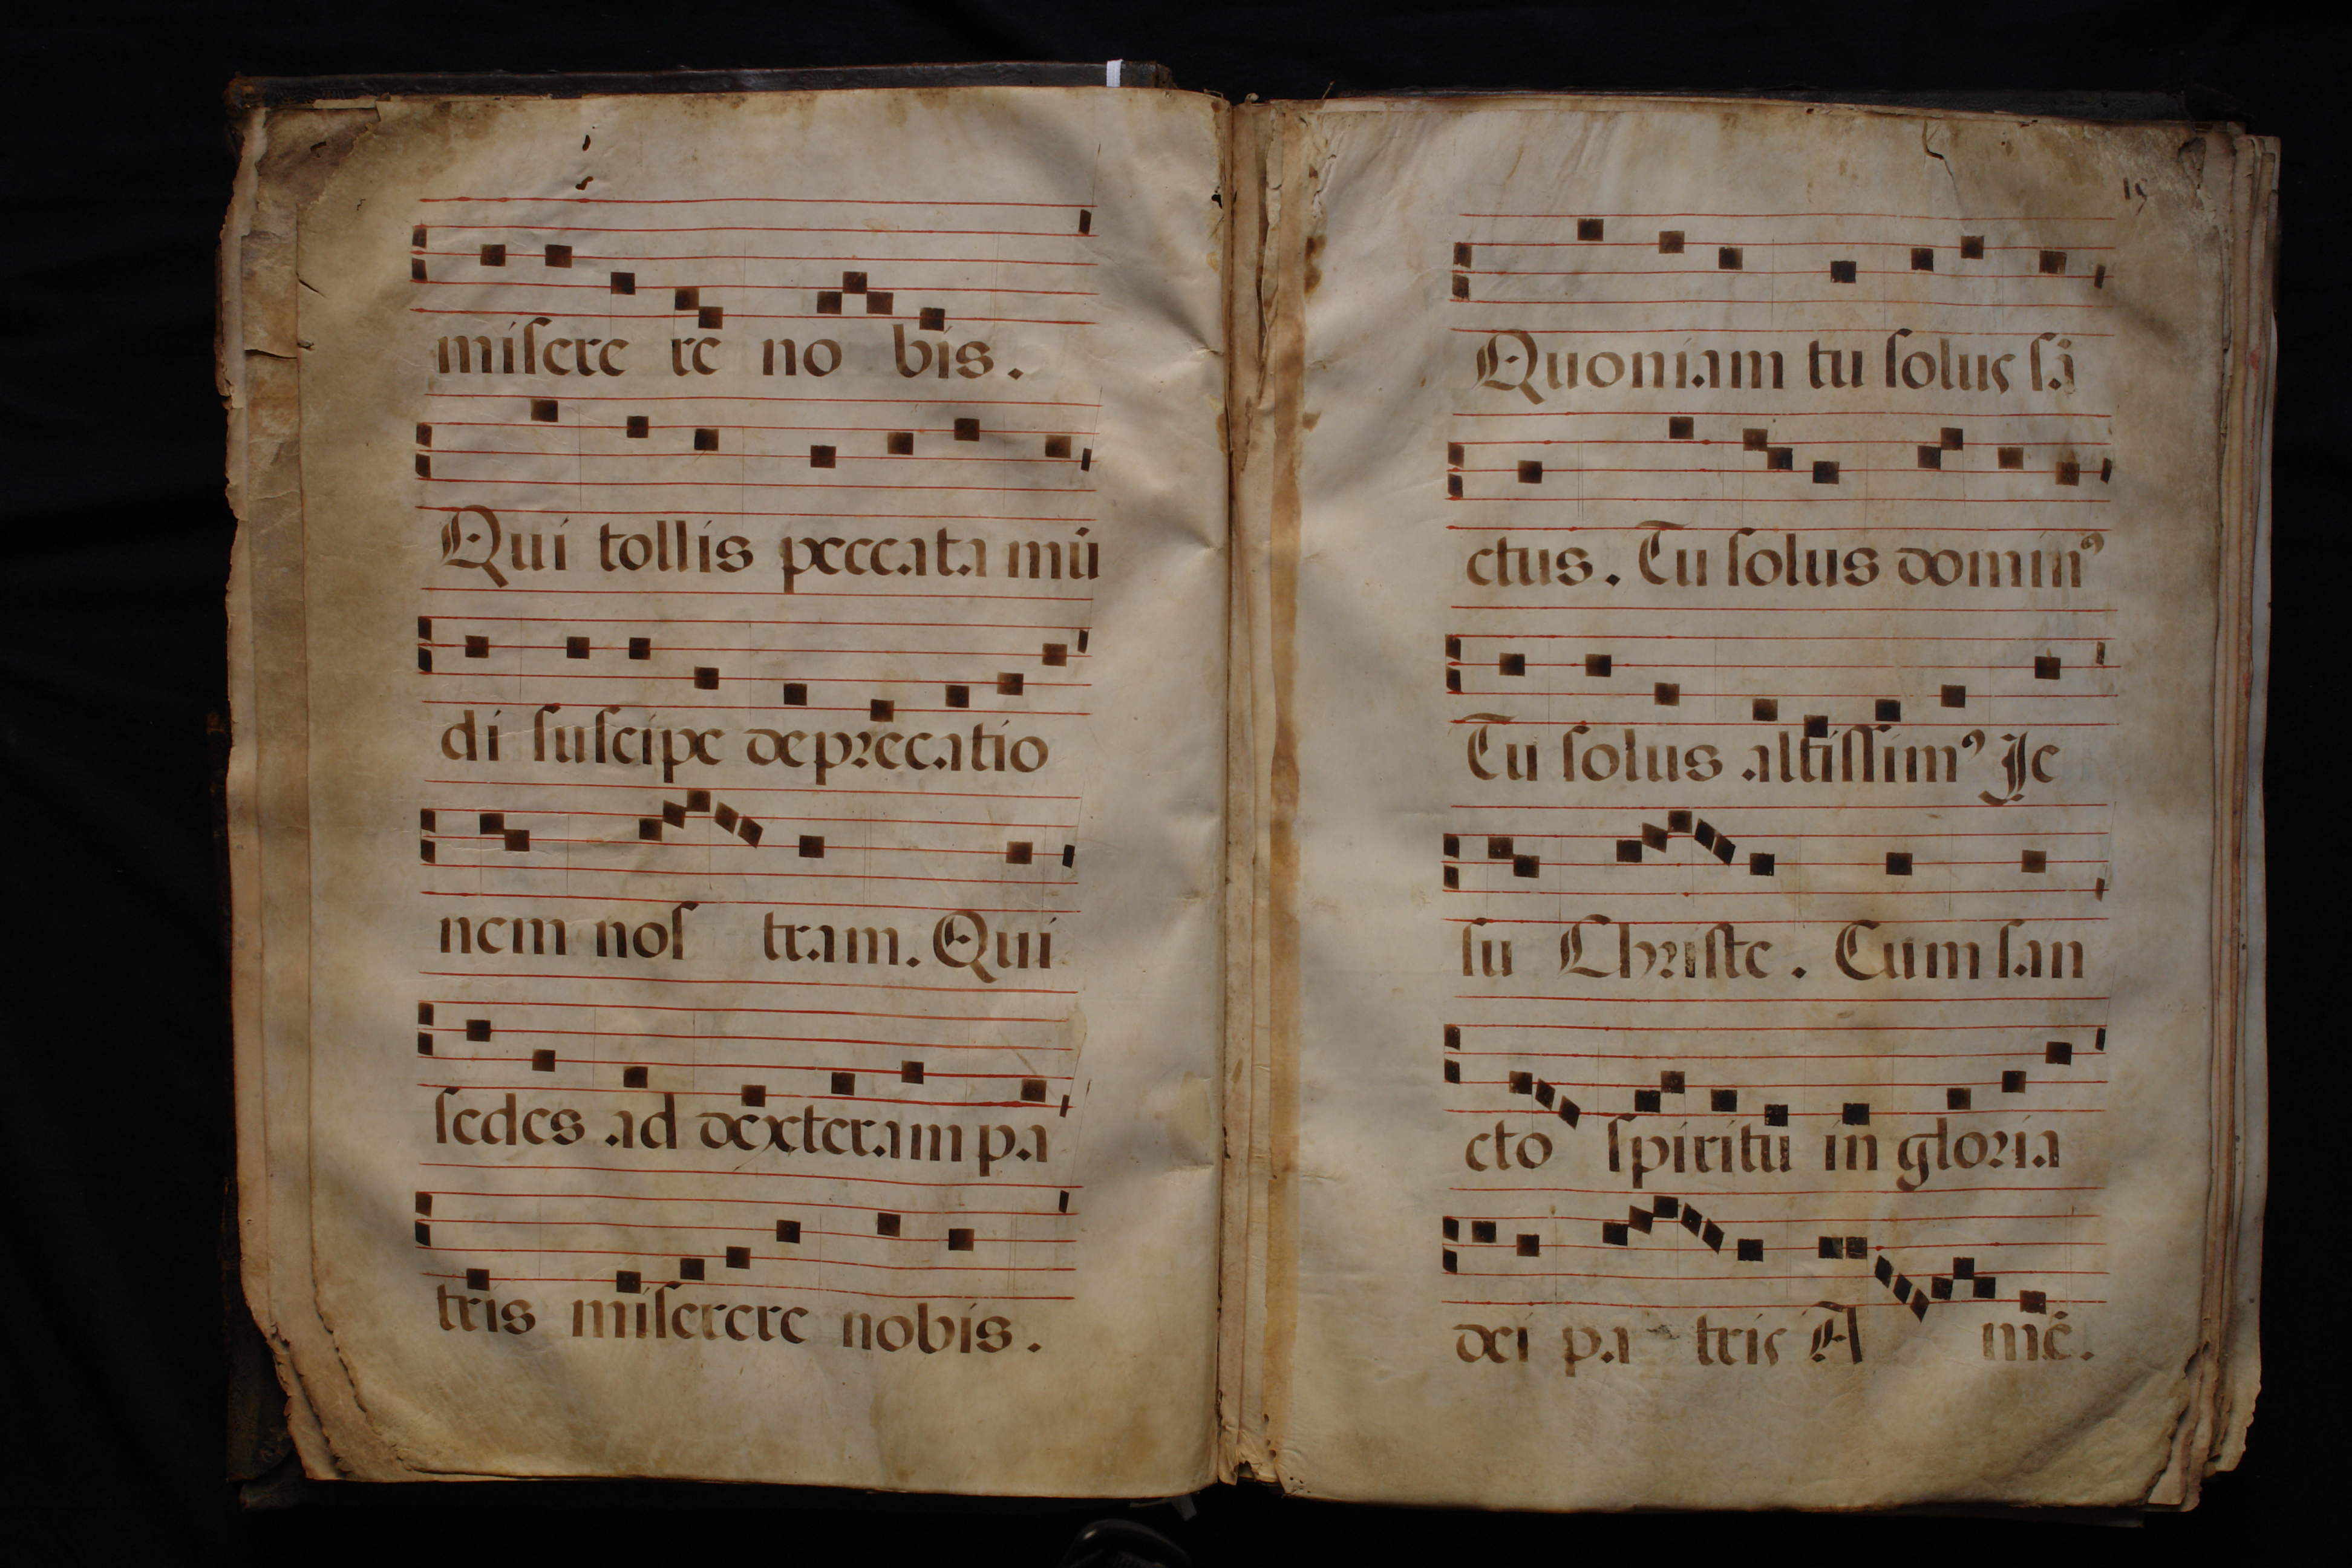 miserere no bis.
Qui tollis peccata mū
di suscipe deprecatio
nem nos tram. Qui
sedes ad dexteram pa
tris miserere nobis.
15
Quoniam tu solus sā
ctus. Tu solus dominꝰ
Tu solus altissimꝰ Je
su Christe. Cum san
cto spiritu in gloria
dei pa tris A mē.